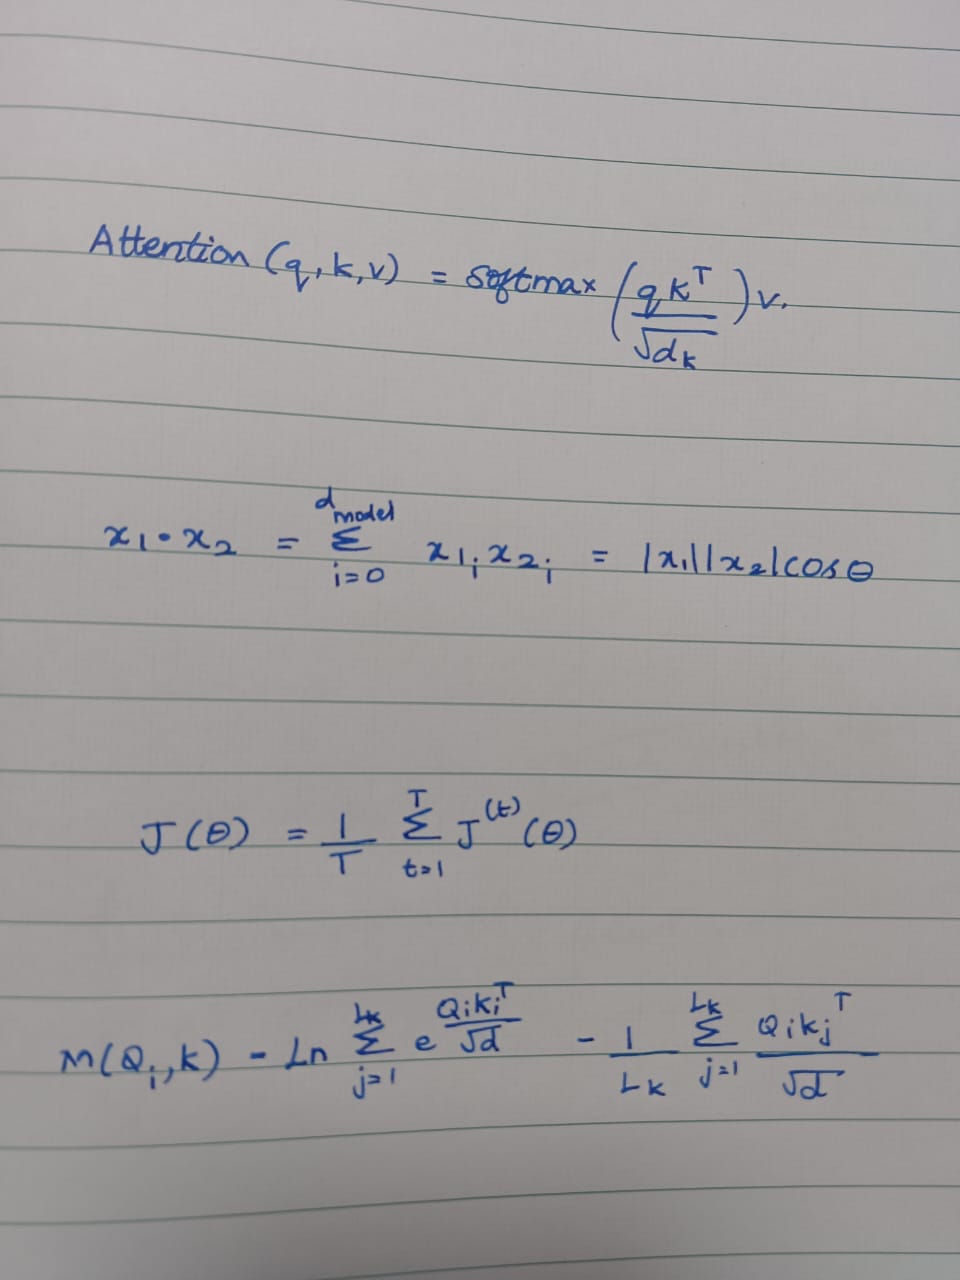 Attention (q, k, v) = softmax (q k^T / √d_k) v.
x_1 • x_2 = Σ_{i=0}^{d_model} x_{1i} x_{2i} = |x_1||x_2|cos θ
J(θ) = 1/T Σ_{t=1}^{T} J^{(t)}(θ)
M(Q_i, k) - Ln Σ_{j=1}^{L_k} e^{Q_i k_i^T / √d} - 1/L_k Σ_{j=1}^{L_k} Q_i k_j^T / √d